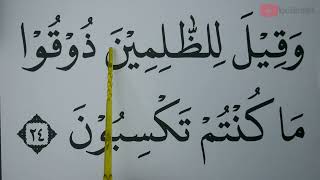 وَقِيْلَ لِلظّٰلِمِيْنَ ذُوْقُوْا
مَا كُنْتُمْ تَكْسِبُوْنَ ٢٤